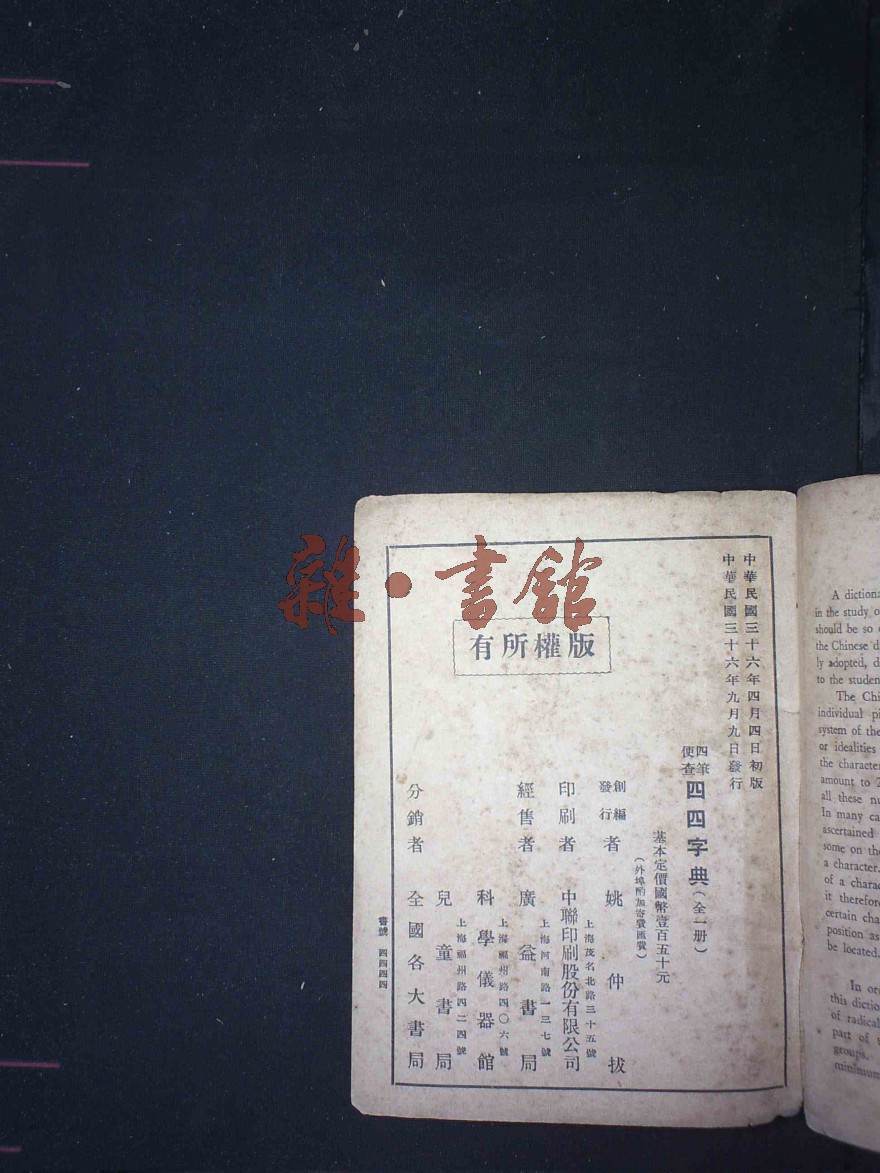 雜·書館
中華民國三十六年四月四日初版
中華民國三十六年九月九日發行
四筆便查四四字典(全一册)
基本定價國幣壹百五十元
(外埠酌加寄費匯費)
創編發行者 姚仲拔
上海茂名北路三十五號
印刷者 中聯印刷股份有限公司
上海河南路一三七號
經售者 廣益書局
上海福州路四〇六號
科學儀器館
上海福州路四二四號
兒童書局
分銷者 全國各大書局
書號 四四四四
版權所有
A dictiona
in the study o
should be so
the Chinese d
ly adopted, d
to the studen
The Chi
individual pi
system of the
or idealities
the character
amount to 2
all these nu
In many ca
ascertained
some on the
a character.
of a chara
it therefore
certain cha
position as
be located.
In or
this dictio
of radical
part of
groups.
minimum